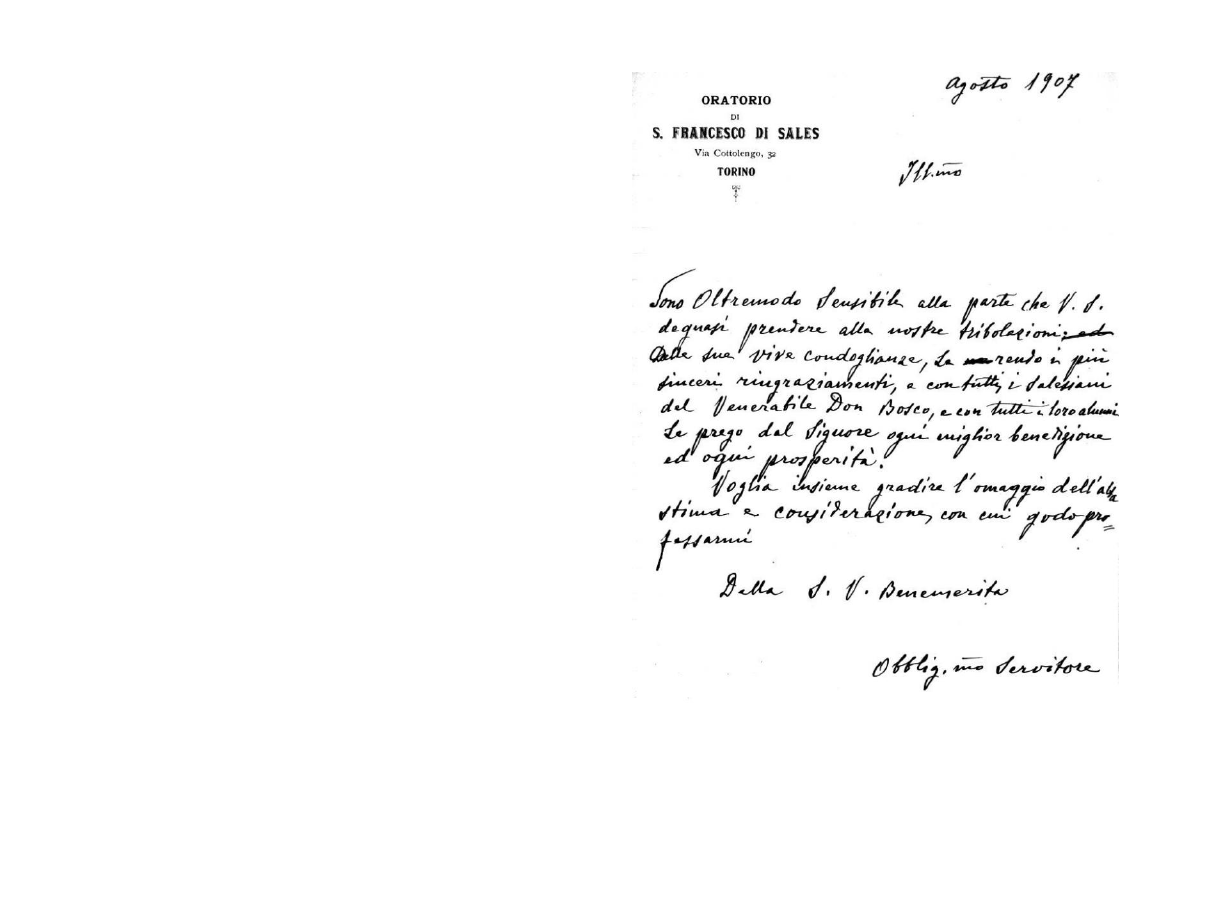 Agosto 1907
ORATORIO
DI
S. FRANCESCO DI SALES
Via Cottolengo, 32
TORINO
Ill.mo
Sono Oltremodo Sensibile alla parte che V. S.
degnasi prendere alle nostre tribolazioni; ed
Delle sue vive condoglianze, Le rendo i più
sinceri ringraziamenti, e con tutti i Salesiani
del Venerabile Don Bosco, e con tutti i loro alunni
Le prego dal Signore ogni miglior benedizione
ed ogni prosperità.
Voglia insieme gradire l'omaggio dell'alta
stima e considerazione, con cui godo pro=
fessarmi
Della S. V. Benemerita
Obblig.mo Servitore